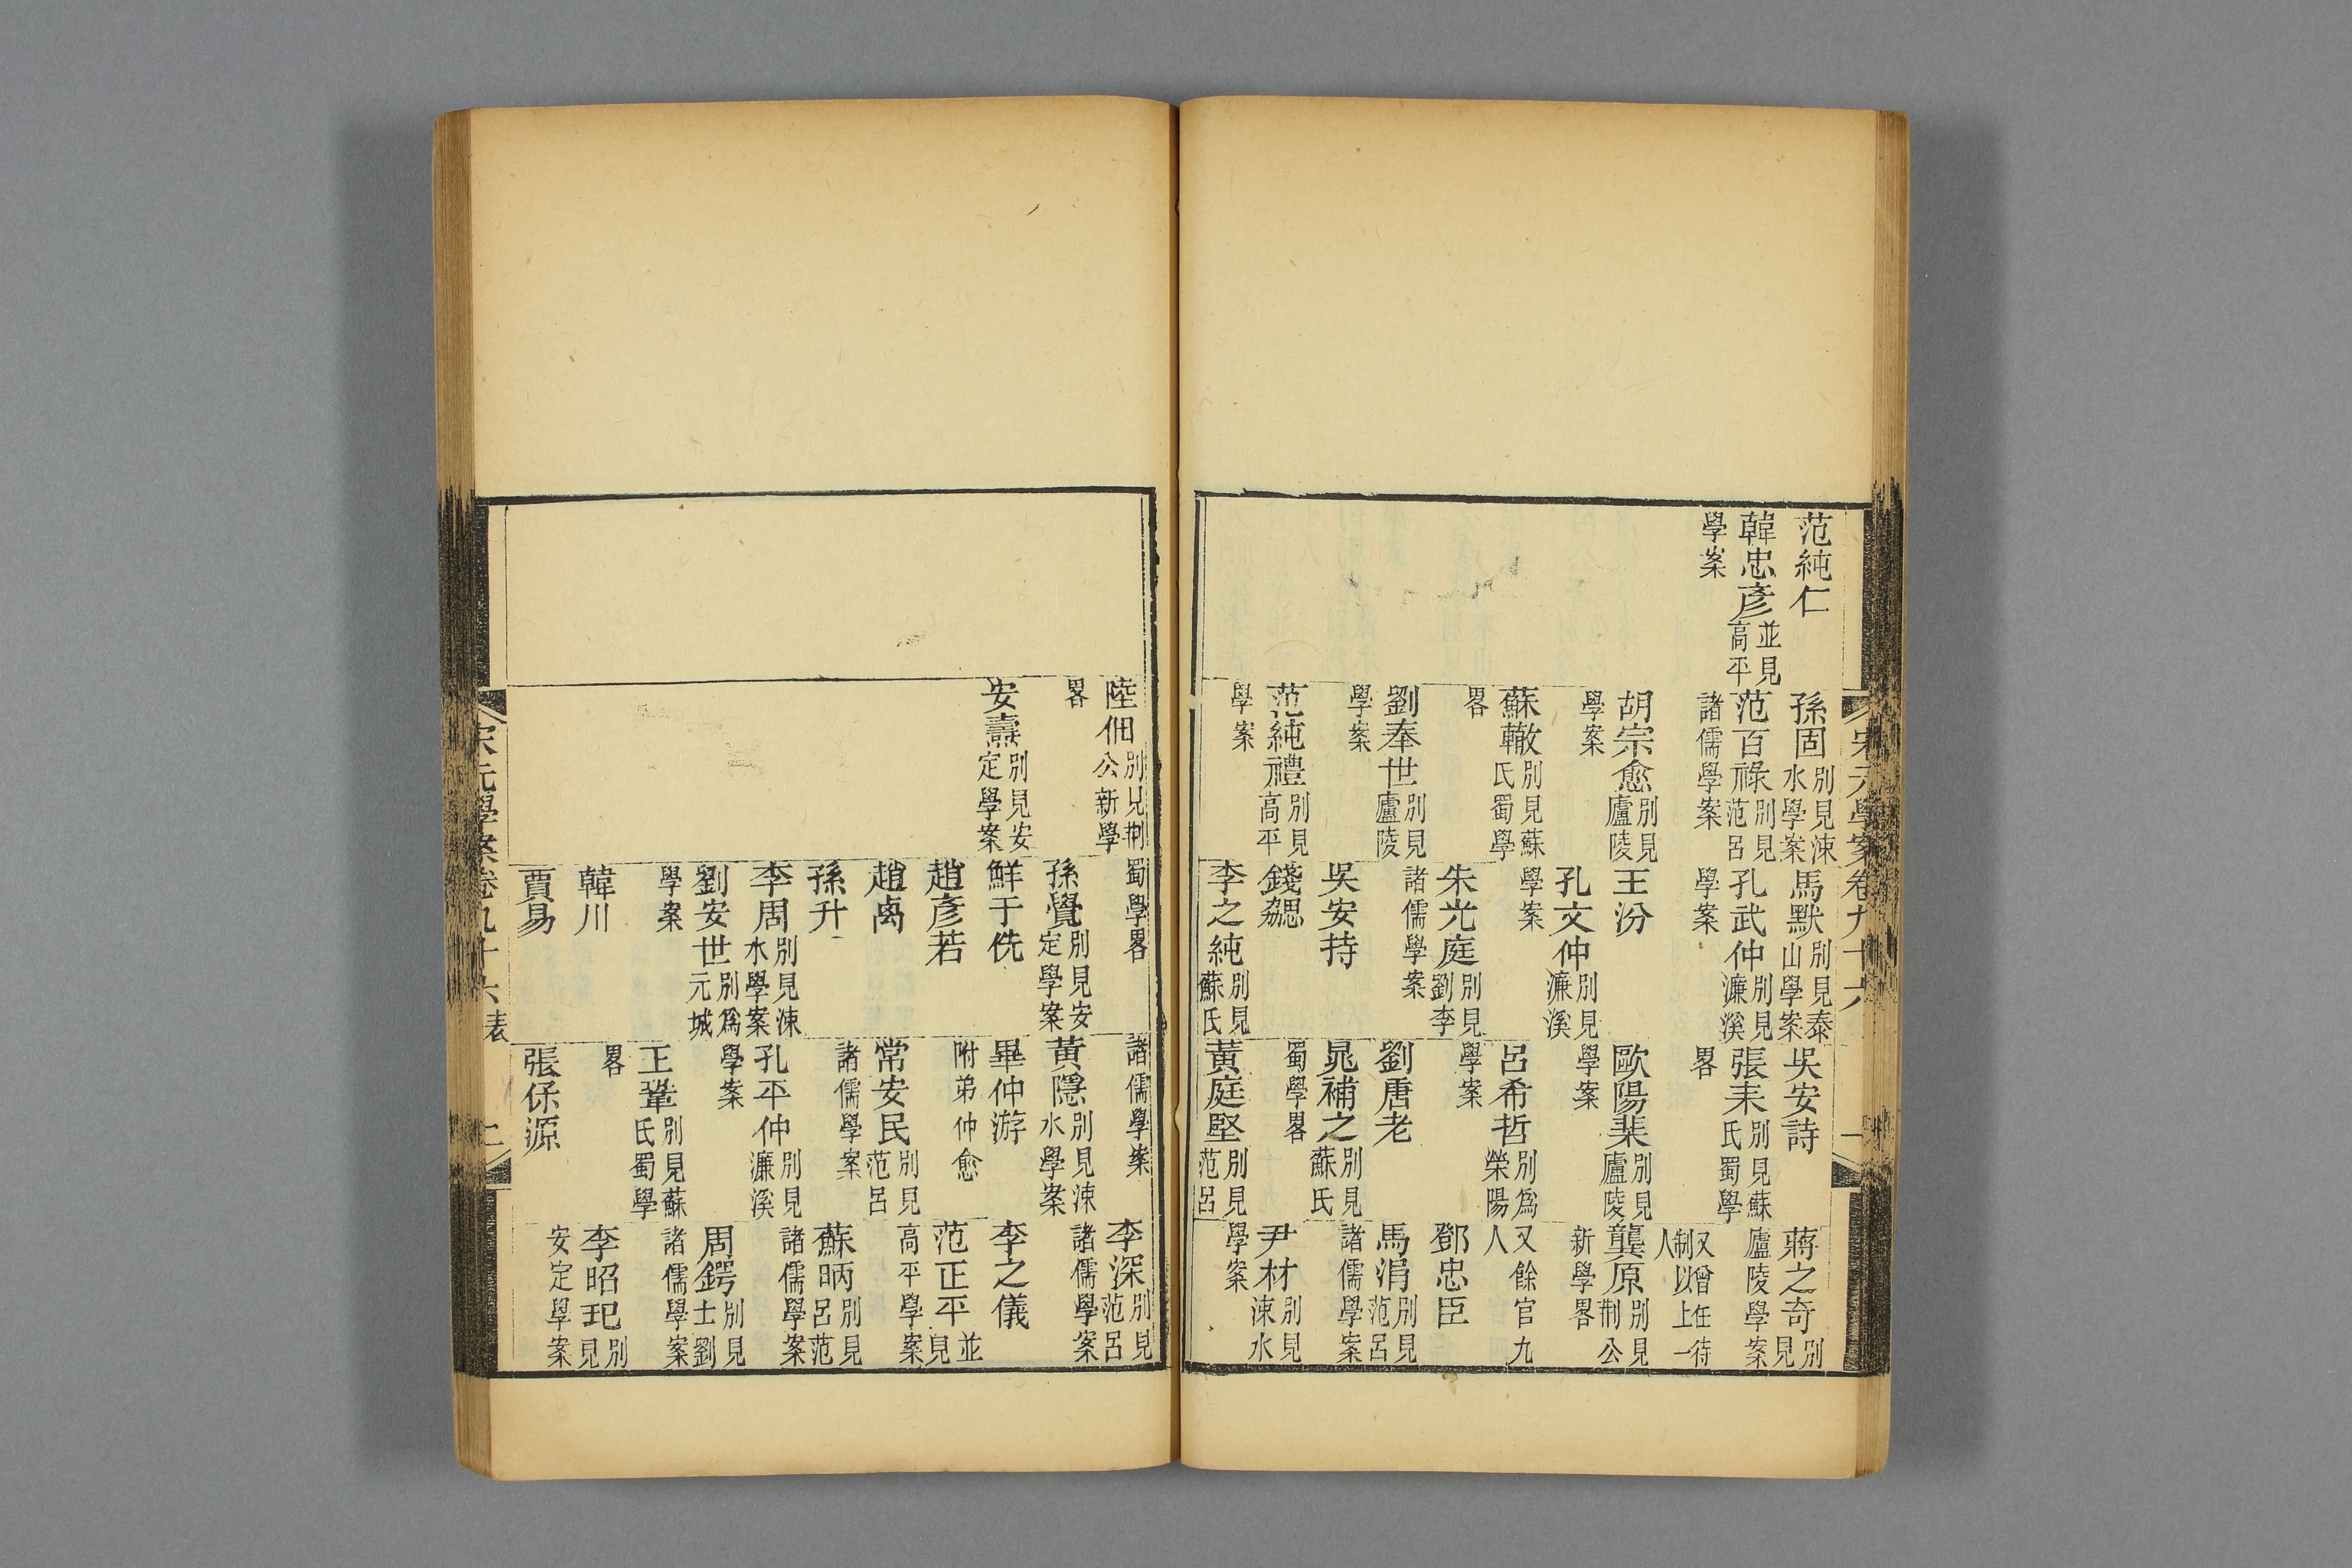 宋元學案卷九十六 一
范純仁
韓忠彥並見高平
學案
孫固別見涑水學案
范百祿別見范呂
諸儒學案
胡宗愈別見廬陵
學案
蘇轍別見蘇氏蜀學
畧
劉奉世別見廬陵
學案
范純禮別見高平
學案
馬默別見泰山學案
孔武仲別見濂溪
學案
王汾
孔文仲別見濂溪
學案
朱光庭別見劉李
諸儒學案
吳安持
錢勰
李之純別見蘇氏
吳安詩
張耒別見蘇氏蜀學
畧
歐陽棐別見廬陵
學案
呂希哲別爲滎陽
學案
劉唐老
晁補之別見蘇氏
蜀學畧
黃庭堅別見范呂
蔣之奇別見
廬陵學案
又曾任待制以上一人
龔原別見荆公
新學畧
又餘官九人
鄧忠臣
馬涓別見范呂
諸儒學案
尹材別見涑水
學案
陸佃別見荆公新學
畧
安燾別見安定學案
蜀學畧
孫覺別見安定學案
鮮于侁
趙彥若
趙卨
孫升
李周別見涑水學案
劉安世別爲元城
學案
韓川
賈易
諸儒學案
黃隱別見涑水學案
畢仲游
附弟仲愈
常安民別見范呂
諸儒學案
孔平仲別見濂溪
學案
王鞏別見蘇氏蜀學
畧
張保源
李深別見范呂
諸儒學案
李之儀
范正平並見
高平學案
蘇昞別見呂范
諸儒學案
周鍔別見士劉
諸儒學案
李昭玘別見
安定學案
宋元學案卷九十六 表 二